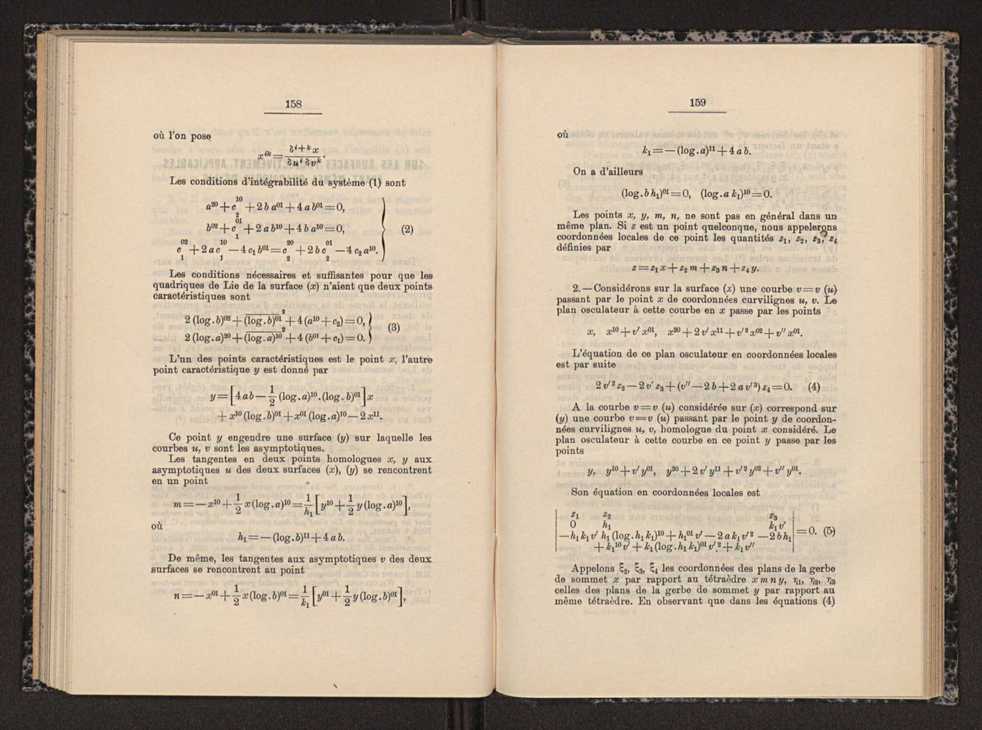 158
où l'on pose
x^{ik} = \frac{∂^{i+k} x}{∂u^i ∂v^k}.
Les conditions d'intégrabilité du système (1) sont
a^{20} + c_2^{10} + 2 b a^{01} + 4 a b^{01} = 0,
b^{02} + c_1^{01} + 2 a b^{10} + 4 b a^{10} = 0, (2)
c_1^{02} + 2 a c_1^{10} — 4 c_1 b^{01} = c_2^{20} + 2 b c_2^{01} — 4 c_2 a^{10}.
Les conditions nécessaires et suffisantes pour que les
quadriques de Lie de la surface (x) n'aient que deux points
caractéristiques sont
2 (log . b)^{02} + \overline{(log . b)^{01}}^2 + 4 (a^{10} + c_2) = 0,
2 (log . a)^{20} + \overline{(log . a)^{10}}^2 + 4 (b^{01} + c_1) = 0. (3)
L'un des points caractéristiques est le point x, l'autre
point caractéristique y est donné par
y = [4 ab — \frac{1}{2} (log . a)^{10} . (log . b)^{01}] x
+ x^{10} (log . b)^{01} + x^{01} (log . a)^{10} — 2 x^{11}.
Ce point y engendre une surface (y) sur laquelle les
courbes u, v sont les asymptotiques.
Les tangentes en deux points homologues x, y aux
asymptotiques u des deux surfaces (x), (y) se rencontrent
en un point
m = — x^{10} + \frac{1}{2} x (log . a)^{10} = \frac{1}{h_1} [y^{10} + \frac{1}{2} y (log . a)^{10}],
où
h_1 = — (log . b)^{11} + 4 a b.
De même, les tangentes aux asymptotiques v des deux
surfaces se rencontrent au point
n = — x^{01} + \frac{1}{2} x (log . b)^{01} = \frac{1}{k_1} [y^{01} + \frac{1}{2} y (log . b)^{01}],
159
où
k_1 = — (log . a)^{11} + 4 a b.
On a d'ailleurs
(log . b h_1)^{01} = 0, (log . a k_1)^{10} = 0.
Les points x, y, m, n, ne sont pas en général dans un
même plan. Si z est un point quelconque, nous appelerons
coordonnées locales de ce point les quantités z_1, z_2, z_3, z_4
définies par
z = z_1 x + z_2 m + z_3 n + z_4 y.
2. — Considérons sur la surface (x) une courbe v = v (u)
passant par le point x de coordonnées curvilignes u, v. Le
plan osculateur à cette courbe en x passe par les points
x, x^{10} + v' x^{01}, x^{20} + 2 v' x^{11} + v'^2 x^{02} + v'' x^{01}.
L'équation de ce plan osculateur en coordonnées locales
est par suite
2 v'^2 z_2 — 2 v' z_3 + (v'' — 2 b + 2 a v'^3) z_4 = 0. (4)
A la courbe v = v (u) considérée sur (x) correspond sur
(y) une courbe v = v (u) passant par le point y de coordon-
nées curvilignes u, v, homologue du point x considéré. Le
plan osculateur à cette courbe en ce point y passe par les
points
y, y^{10} + v' y^{01}, y^{20} + 2 v' y^{11} + v'^2 y^{02} + v'' y^{01}.
Son équation en coordonnées locales est
z_1 z_2 z_3
0 h_1 k_1 v'
— h_1 k_1 v' h_1 (log . h_1 k_1)^{10} + h_1^{01} v' — 2 a k_1 v'^2 — 2 b h_1 = 0. (5)
+ k_1^{10} v' + k_1 (log . h_1 k_1)^{01} v'^2 + k_1 v''
Appelons ξ_2, ξ_3, ξ_4 les coordonnées des plans de la gerbe
de sommet x par rapport au tétraèdre x m n y, η_1, η_2, η_3
celles des plans de la gerbe de sommet y par rapport au
même tétraèdre. En observant que dans les équations (4)